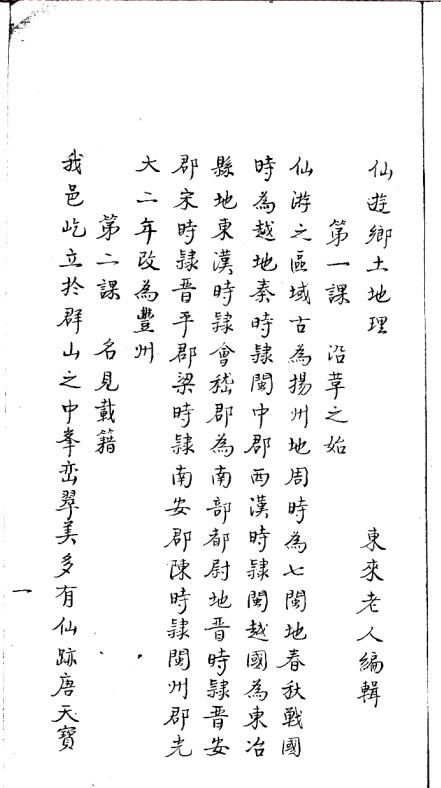 仙遊鄉土地理　東來老人編輯
第一課　沿革之始
仙游之區域古為揚州地周時為七閩地春秋戰國
時為越地秦時隸閩中郡西漢時隸閩越國為東冶
縣地東漢時隸會嵇郡為南部都尉地晋時隸晋安
郡宋時隸晋平郡梁時隸南安郡陳時隸閩州郡光
大二年改為豐州
第二課　名見載籍
我邑屹立於群山之中峯峦翠美多有仙跡唐天寶
一